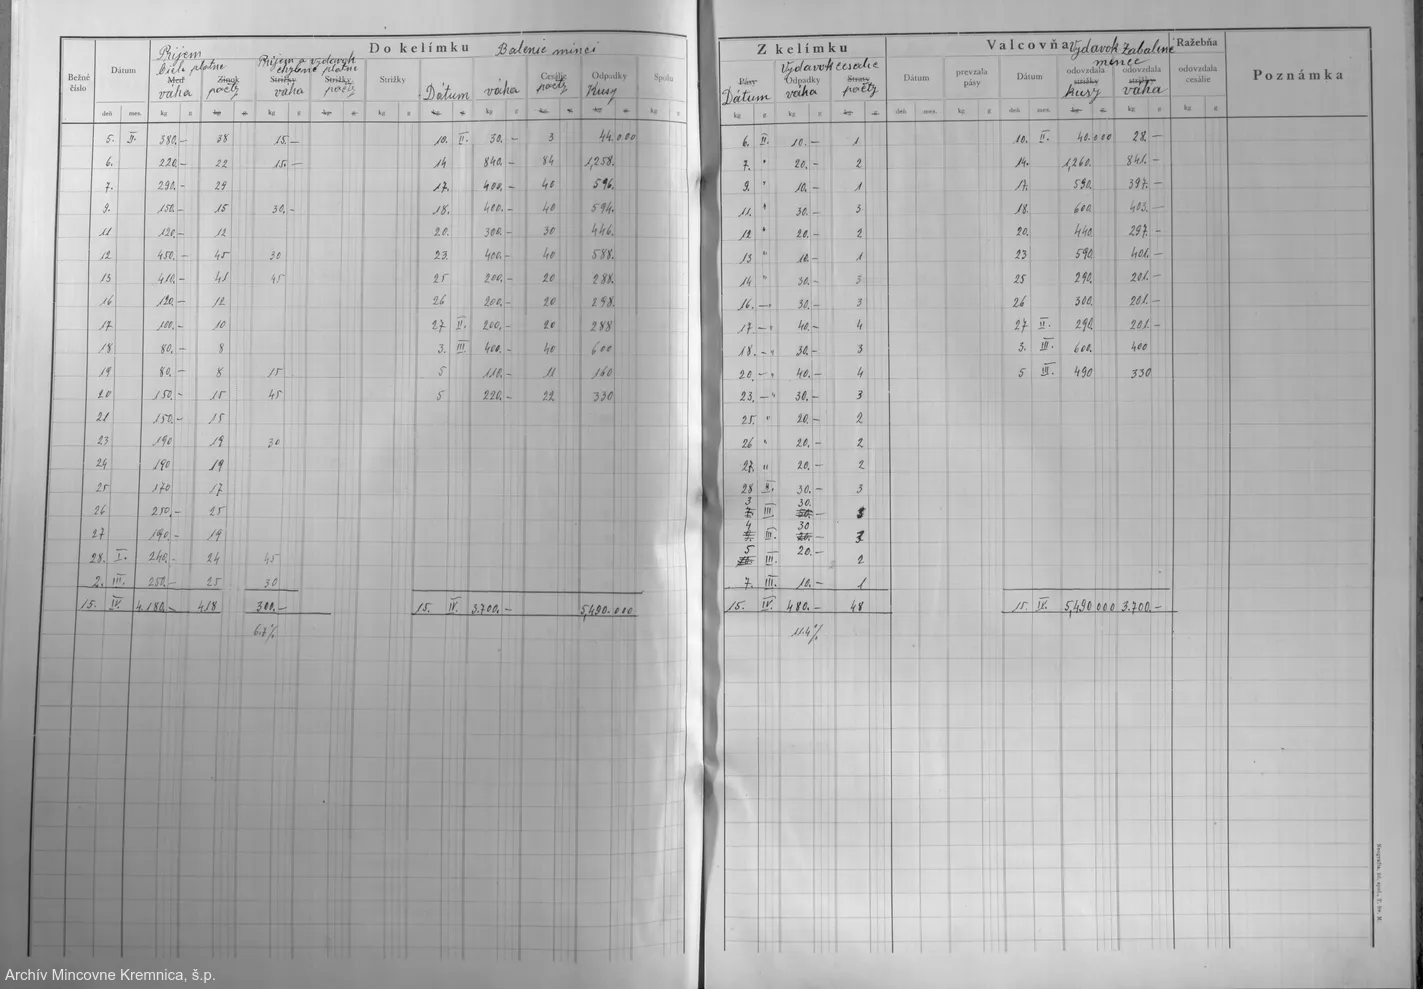 Do kelímku Balenie mincí
Bežné číslo
Dátum
Príjem
čiele platne
Med
váha
Zinok
počty
Príjem a výdavok
chybné platne
Strižky
váha
Strižky
počty
Strižky
Dátum
váha
Cesálie
počty
Odpadky
Kusy
Spolu
deň mes. kg g kg g kg g kg g kg g kg g kg g kg g kg g kg g
5. II. 380.- 38 15.- 10. II. 30.- 3 44.000
6. 220.- 22 15.- 14 840.- 84 1,258.
7. 290.- 29 17. 400.- 40 596.
9. 150.- 15 30.- 18. 400.- 40 594.
11 120.- 12 20. 300.- 30 446.
12 450.- 45 30 23. 400.- 40 588.
13 410.- 41 45 25 200.- 20 288.
16 120.- 12 26 200.- 20 298.
17 100.- 10 27 II. 200.- 20 288
18 80.- 8 3. III. 400.- 40 600
19 80.- 8 15 5 110.- 11 160
20 150.- 15 45 5 220.- 22 330
21 150.- 15
23 190 19 30
24 190 19
25 170 17
26 250.- 25
27 190.- 19
28. I. 240.- 24 45
2. III. 250.- 25 30
15. IV. 4.180.- 418 300.- 15. IV. 3.700.- 5,490.000
6.7%
Z kelímku
Valcovňa Výdavok zabalené
mince
Ražebňa
Poznámka
Pásy
Dátum
Výdavok cesalie
Odpadky
váha
Straty
počty
Dátum
prevzala pásy
Dátum
odovzdala
strižky
kusy
odovzdala
strižky
váha
odovzdala cesálie
kg g kg g kg g deň mes. kg g deň mes. kg g kg g kg g
6. II. 10.- 1 10. II. 40.000 28.-
7. " 20.- 2 14. 1,260. 841.-
9. " 10.- 1 17. 590. 397.-
11. " 30.- 3 18. 600. 403.-
12 " 20.- 2 20. 440. 297.-
13 " 10.- 1 23 590. 401.-
14 " 30.- 3 25 290. 201.-
16. -" 30.- 3 26 300. 201.-
17 -" 40.- 4 27 II. 290. 201.-
18. -" 30.- 3 3. III. 600. 400
20. -" 40.- 4 5 III. 490 330
23. -" 30.- 3
25. " 20.- 2
26 " 20.- 2
27. " 20.- 2
28 II. 30.- 3
3 III. 30. 3
4 III. 30 3
5 III. 20.- 2
7. III. 10.- 1
15. IV. 480.- 48 15. IV. 5,490 000 3.700.-
11.4%
Archív Mincovne Kremnica, š.p.